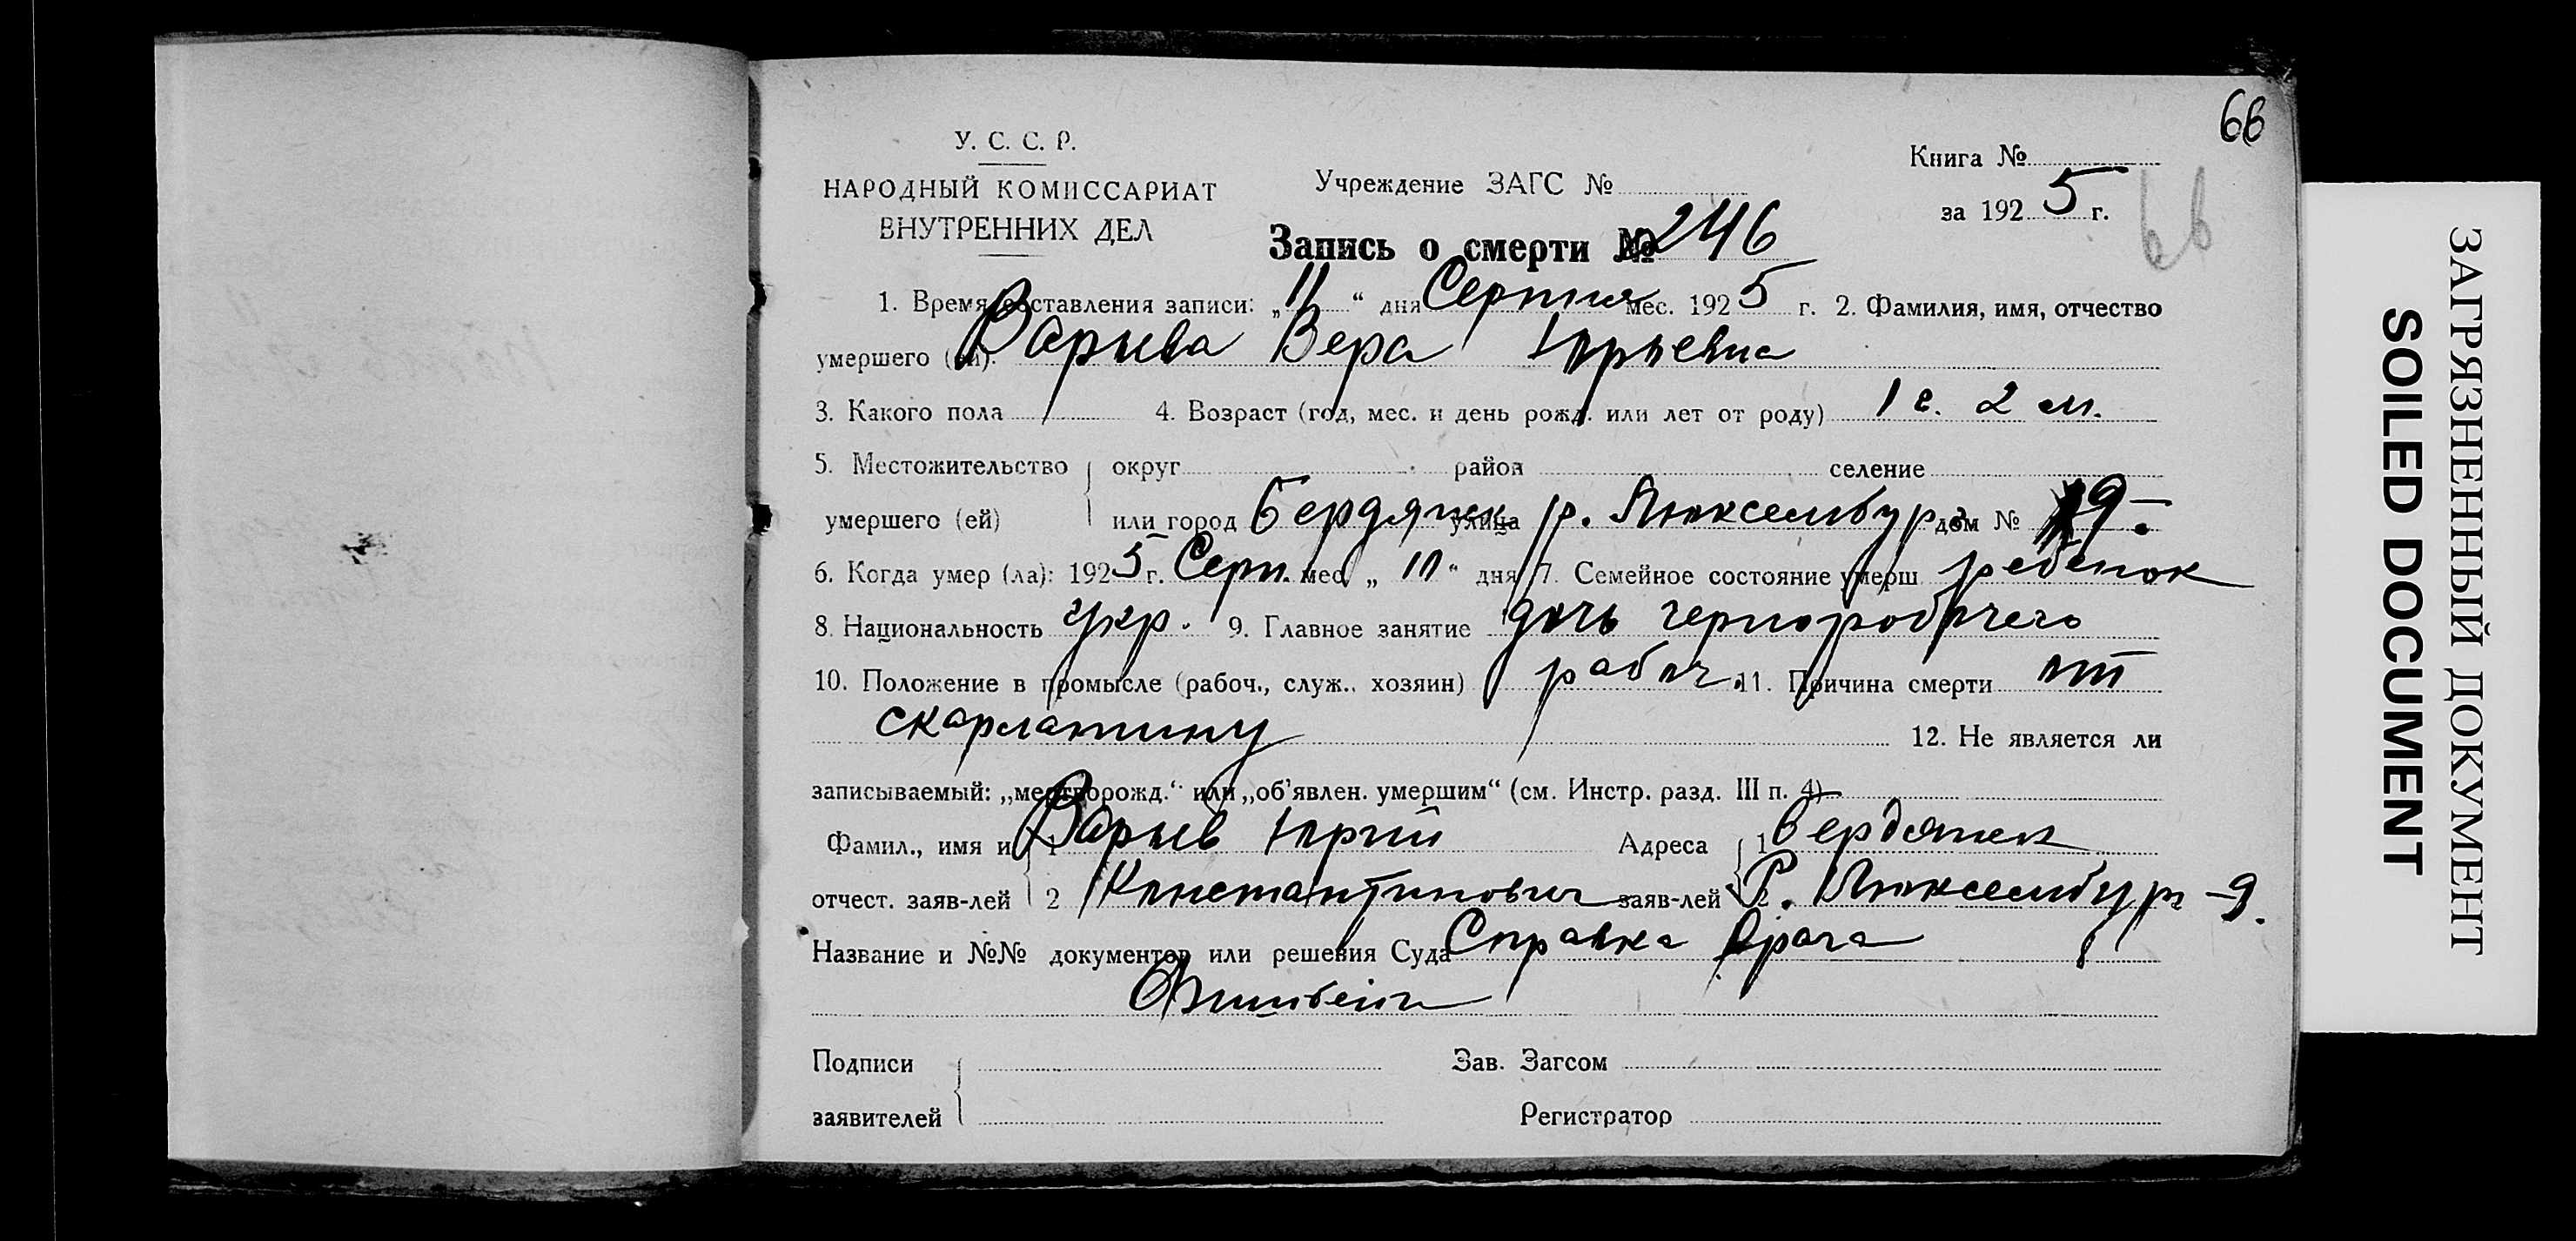 66
У. С. С. Р.
НАРОДНЫЙ КОМИССАРИАТ
ВНУТРЕННИХ ДЕЛ
Учреждение ЗАГС №
Книга №
за 1925 г.
66
Запись о смерти № 246
1. Время составления записи: „11“ дня Серпня мес. 1925 г. 2. Фамилия, имя, отчество
умершего (ей). Варыва Вера Юрьевна
3. Какого пола 4. Возраст (год, мес. и день рожд. или лет от роду) 1 г. 2 м.
5. Местожительство округ район селение
умершего (ей) или город Бердянск улица Р. Люксембург дом № 9.
6. Когда умер (ла): 1925 г. Серп. мес. „10“ дня 7. Семейное состояние умерш ребенок
8. Национальность укр. 9. Главное занятие дочь
10. Положение в промысле (рабоч., служ., хозяин) рабоч. 11. Причина смерти от
скарлатину 12. Не является ли
записываемый: „мертворожд.“ или „об'явлен. умершим“ (см. Инстр. разд. III п. 4)
Фамил., имя и 1 Варыв Юрий Адреса 1 Бердянск
отчест. заяв-лей 2 Константинович заяв-лей 2 Р. Люксембург – 9.
Название и №№ документов или решения Суда Справка врача
Подписи
заявителей
Зав. Загсом
Регистратор
ЗАГРЯЗНЕННЫЙ ДОКУМЕНТ
SOILED DOCUMENT